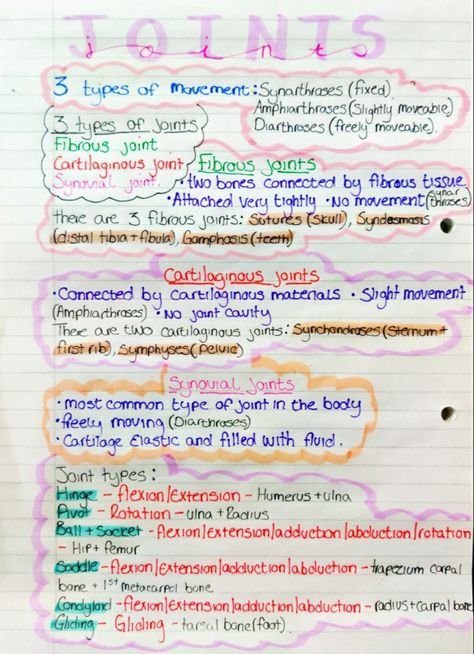 JOINTS
joints
3 types of movement: Synarthroses (fixed)
Amphiarthroses (Slightly moveable)
Diarthroses (freely moveable)
3 types of joints
Fibrous joint
Cartilaginous joint
Synovial joint.
Fibrous joints
• two bones connected by fibrous tissue
• Attached very tightly • No movement (Synarthroses)
there are 3 fibrous joints: Sutures (skull), Syndesmosis
(distal tibia + fibula), Gomphosis (teeth)
Cartilaginous joints
• Connected by cartilaginous materials • Slight movement
(Amphiarthroses) • No joint cavity
There are two cartilaginous joints: Synchondroses (Sternum +
first rib), Symphyses (pelvic)
Synovial joints
• most common type of joint in the body
• freely moving (Diarthroses)
• Cartilage Elastic and filled with fluid.
Joint types:
Hinge - flexion/Extension - Humerus + ulna
Pivot - Rotation - ulna + Radius
Ball + Socket - flexion/extension/adduction/abduction/rotation
- Hip + femur
Saddle - flexion/Extension/adduction/abduction - trapezium carpal
bone + 1st metacarpol bone
Condyloid - flexion/Extension/adduction/abduction - radius + carpal bone
Gliding - Gliding - tarsal bone (foot).